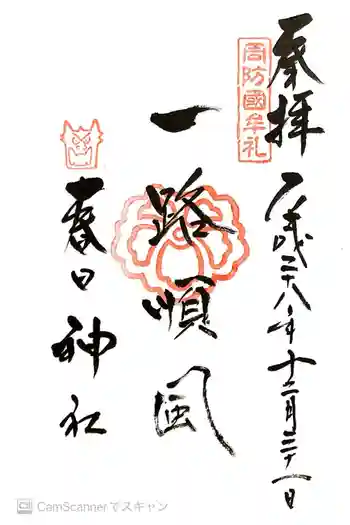 奉拝
周防國牟礼
平成二十八年十二月三十一日
一路順風
春日神社
CamScannerでスキャン